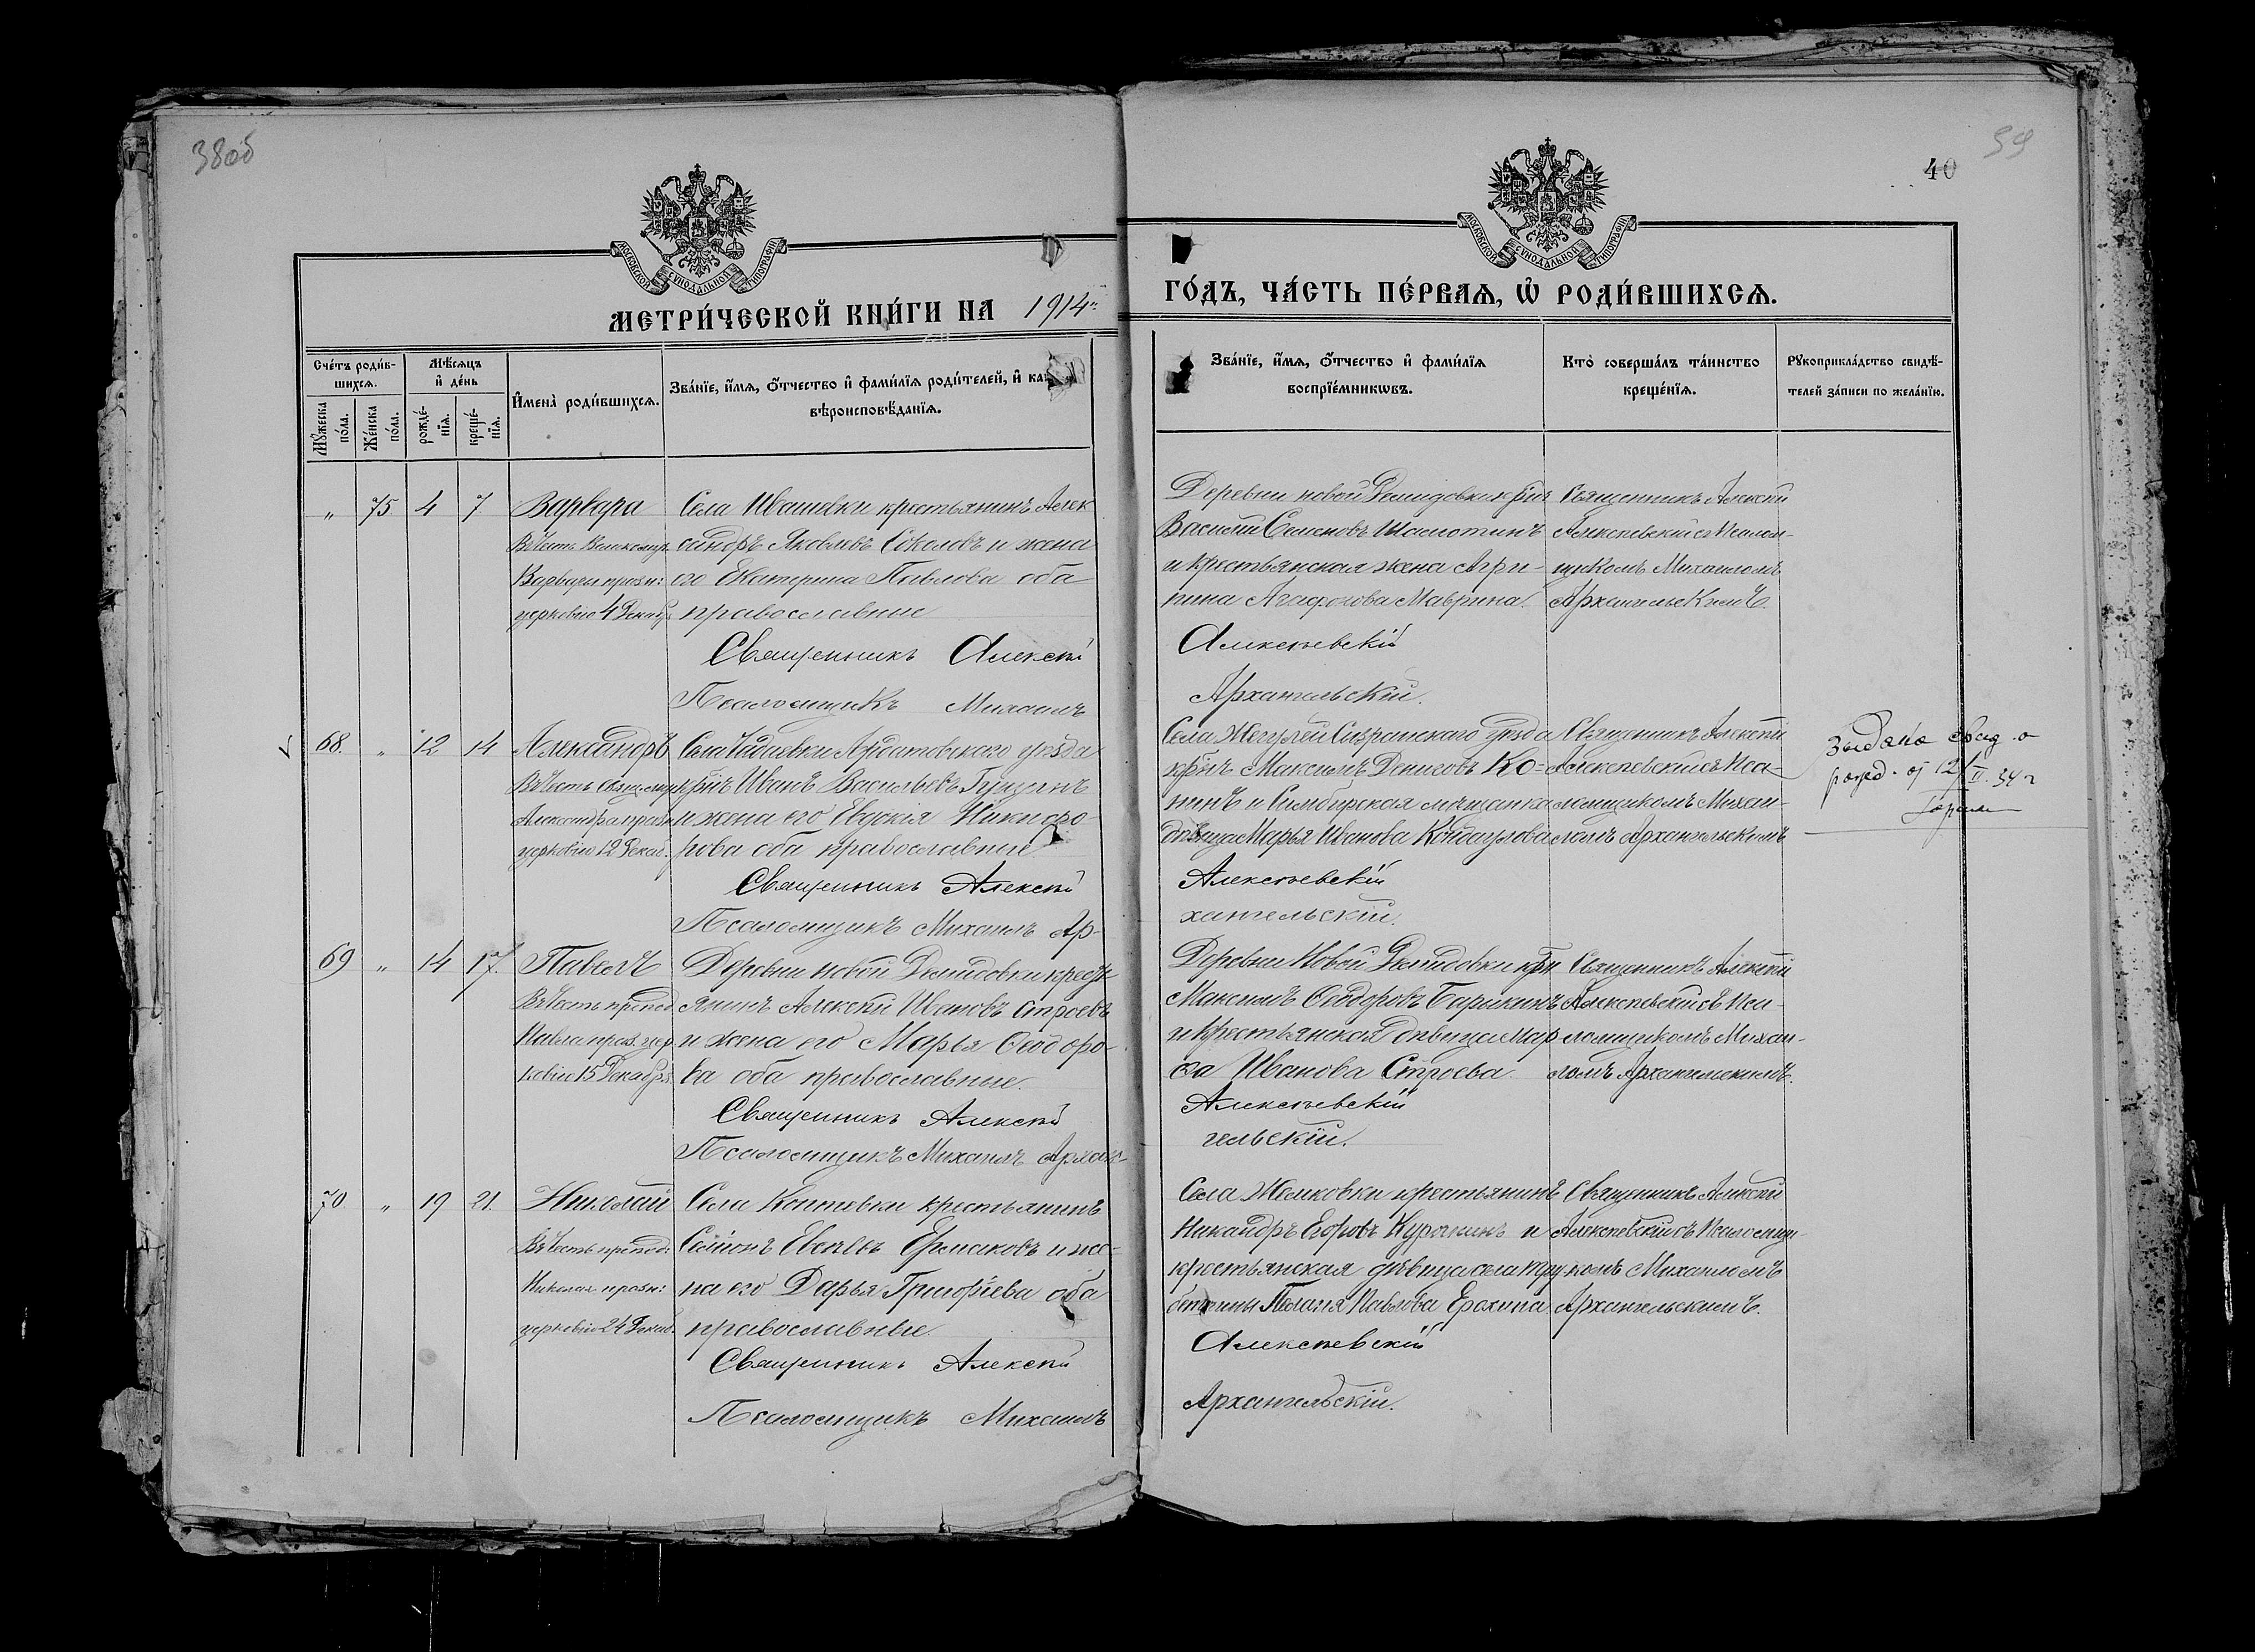 38об
39
40
МОСКОВСКОЙ СѴНОДАЛЬНОЙ ТИПОГРАФІИ
МОСКОВСКОЙ СѴНОДАЛЬНОЙ ТИПОГРАФІИ
МЕТРИ́ЧЕСКОЙ КНИ́ГИ НА 1914 ГО́ДЪ, ЧА́СТЬ ПЕ́РВАѦ, Ѡ҆ РОДИ́ВШИХСѦ.
Сче́тъ роди́в-
шихсѧ.
Мꙋ́жеска по́ла.
Же́нска по́ла.
Мѣ́сѧцъ
и҆ де́нь
рожде́-
нїѧ.
креще́-
нїѧ.
И҆мена̀ роди́вшихсѧ.
Зва́нїе, и҆́мѧ, ѻ҆́тчество и҆ фами́лїѧ роди́телей, и҆
вѣроисповѣ́данїѧ.
Зва́нїе, и҆́мѧ, ѻ҆́тчество и҆ фами́лїѧ
воспрїе́мникѡвъ.
Кто̀ соверша́лъ та́инство
креще́нїѧ.
Рꙋкоприкла́дство свидѣ́-
телей за́писи по жела́нїю.
" 75 4 7
Варвара
Въ честь Великомуч.
Варвары празн:
церковію 4 Декаб.
Села Ивашевки крестьянинъ Алек
сандръ Яковлевъ Соколовъ и жена
его Екатерина Павлова оба
православные
Священникъ Алексѣй
Псаломщикъ Михаилъ
Деревни новой Демидовки кр͠нъ
Василий Семеновъ Шалотинъ
и крестьянская жена Агри-
пина Агафонова Маврина.
Алексѣевскій
Архангельскій.
Священникъ Алексѣй
Алексѣевскій съ Псалом-
щикомъ Михаиломъ
Архангельскимъ.
68. " 12 14
Александръ
Въ честь Свящ. муч.
Александра празн.
церковію 12 Декаб.
Ардатовскаго уѣзда
кр͠нъ Иванъ Васильевъ
и жена его Евдокія Никифо-
рова оба православные
Священникъ Алексѣй
Псаломщикъ Михаилъ Ар-
Села Жегулей Сызранскаго уѣзда
кр͠нъ Максимъ Денисовъ Ко-
нинъ и Симбирская мѣщанка
дѣвица Марья Иванова
Алексѣевскій
хангельскій.
Священникъ Алексѣй
Алексѣевскій съ Пса-
ломщикомъ Михаи-
ломъ Архангельскимъ
Выдано свид. о
рожд. от 12/II. 34 г
69 " 14 17.
Павелъ
Въ честь препод.
Павла праз. цер
ковію 15 Декабря.
Деревни Новой Демидовки кресть
янинъ Алексѣй Ивановъ Строевъ
и жена его Марья Ѳеодоро-
ва оба православные.
Священникъ Алексѣй
Псаломщикъ Михаилъ Архан-
Деревни Новой Демидовки кр͠нъ
Максимъ Ѳеодоровъ Барикинъ
и крестьянская дѣвица Мар
ѳа Иванова Строева
Алексѣевскій
гельскій.
Священникъ Алексѣй
Алексѣевскій съ Пса-
ломщикомъ Михаи-
ломъ Архангельскимъ.
70 " 19 21.
Николай
Въ честь препод:
Николая празн:
церковію 24 Декаб.
Села Коптевки крестьянинъ
Семіонъ Ермаковъ и же-
на его Дарья Григорьева оба
православные.
Священникъ Алексѣй
Псаломщикъ Михаилъ
Села Жемковки крестьянинъ
Никандръ Егоровъ Курочкинъ и
крестьянская дѣвица села Тру
бетчины Пелагія Павлова Ерохина
Алексѣевскій
Архангельскій.
Священникъ Алексѣй
Алексѣевскій съ Псаломщи-
комъ Михаиломъ
Архангельскимъ.